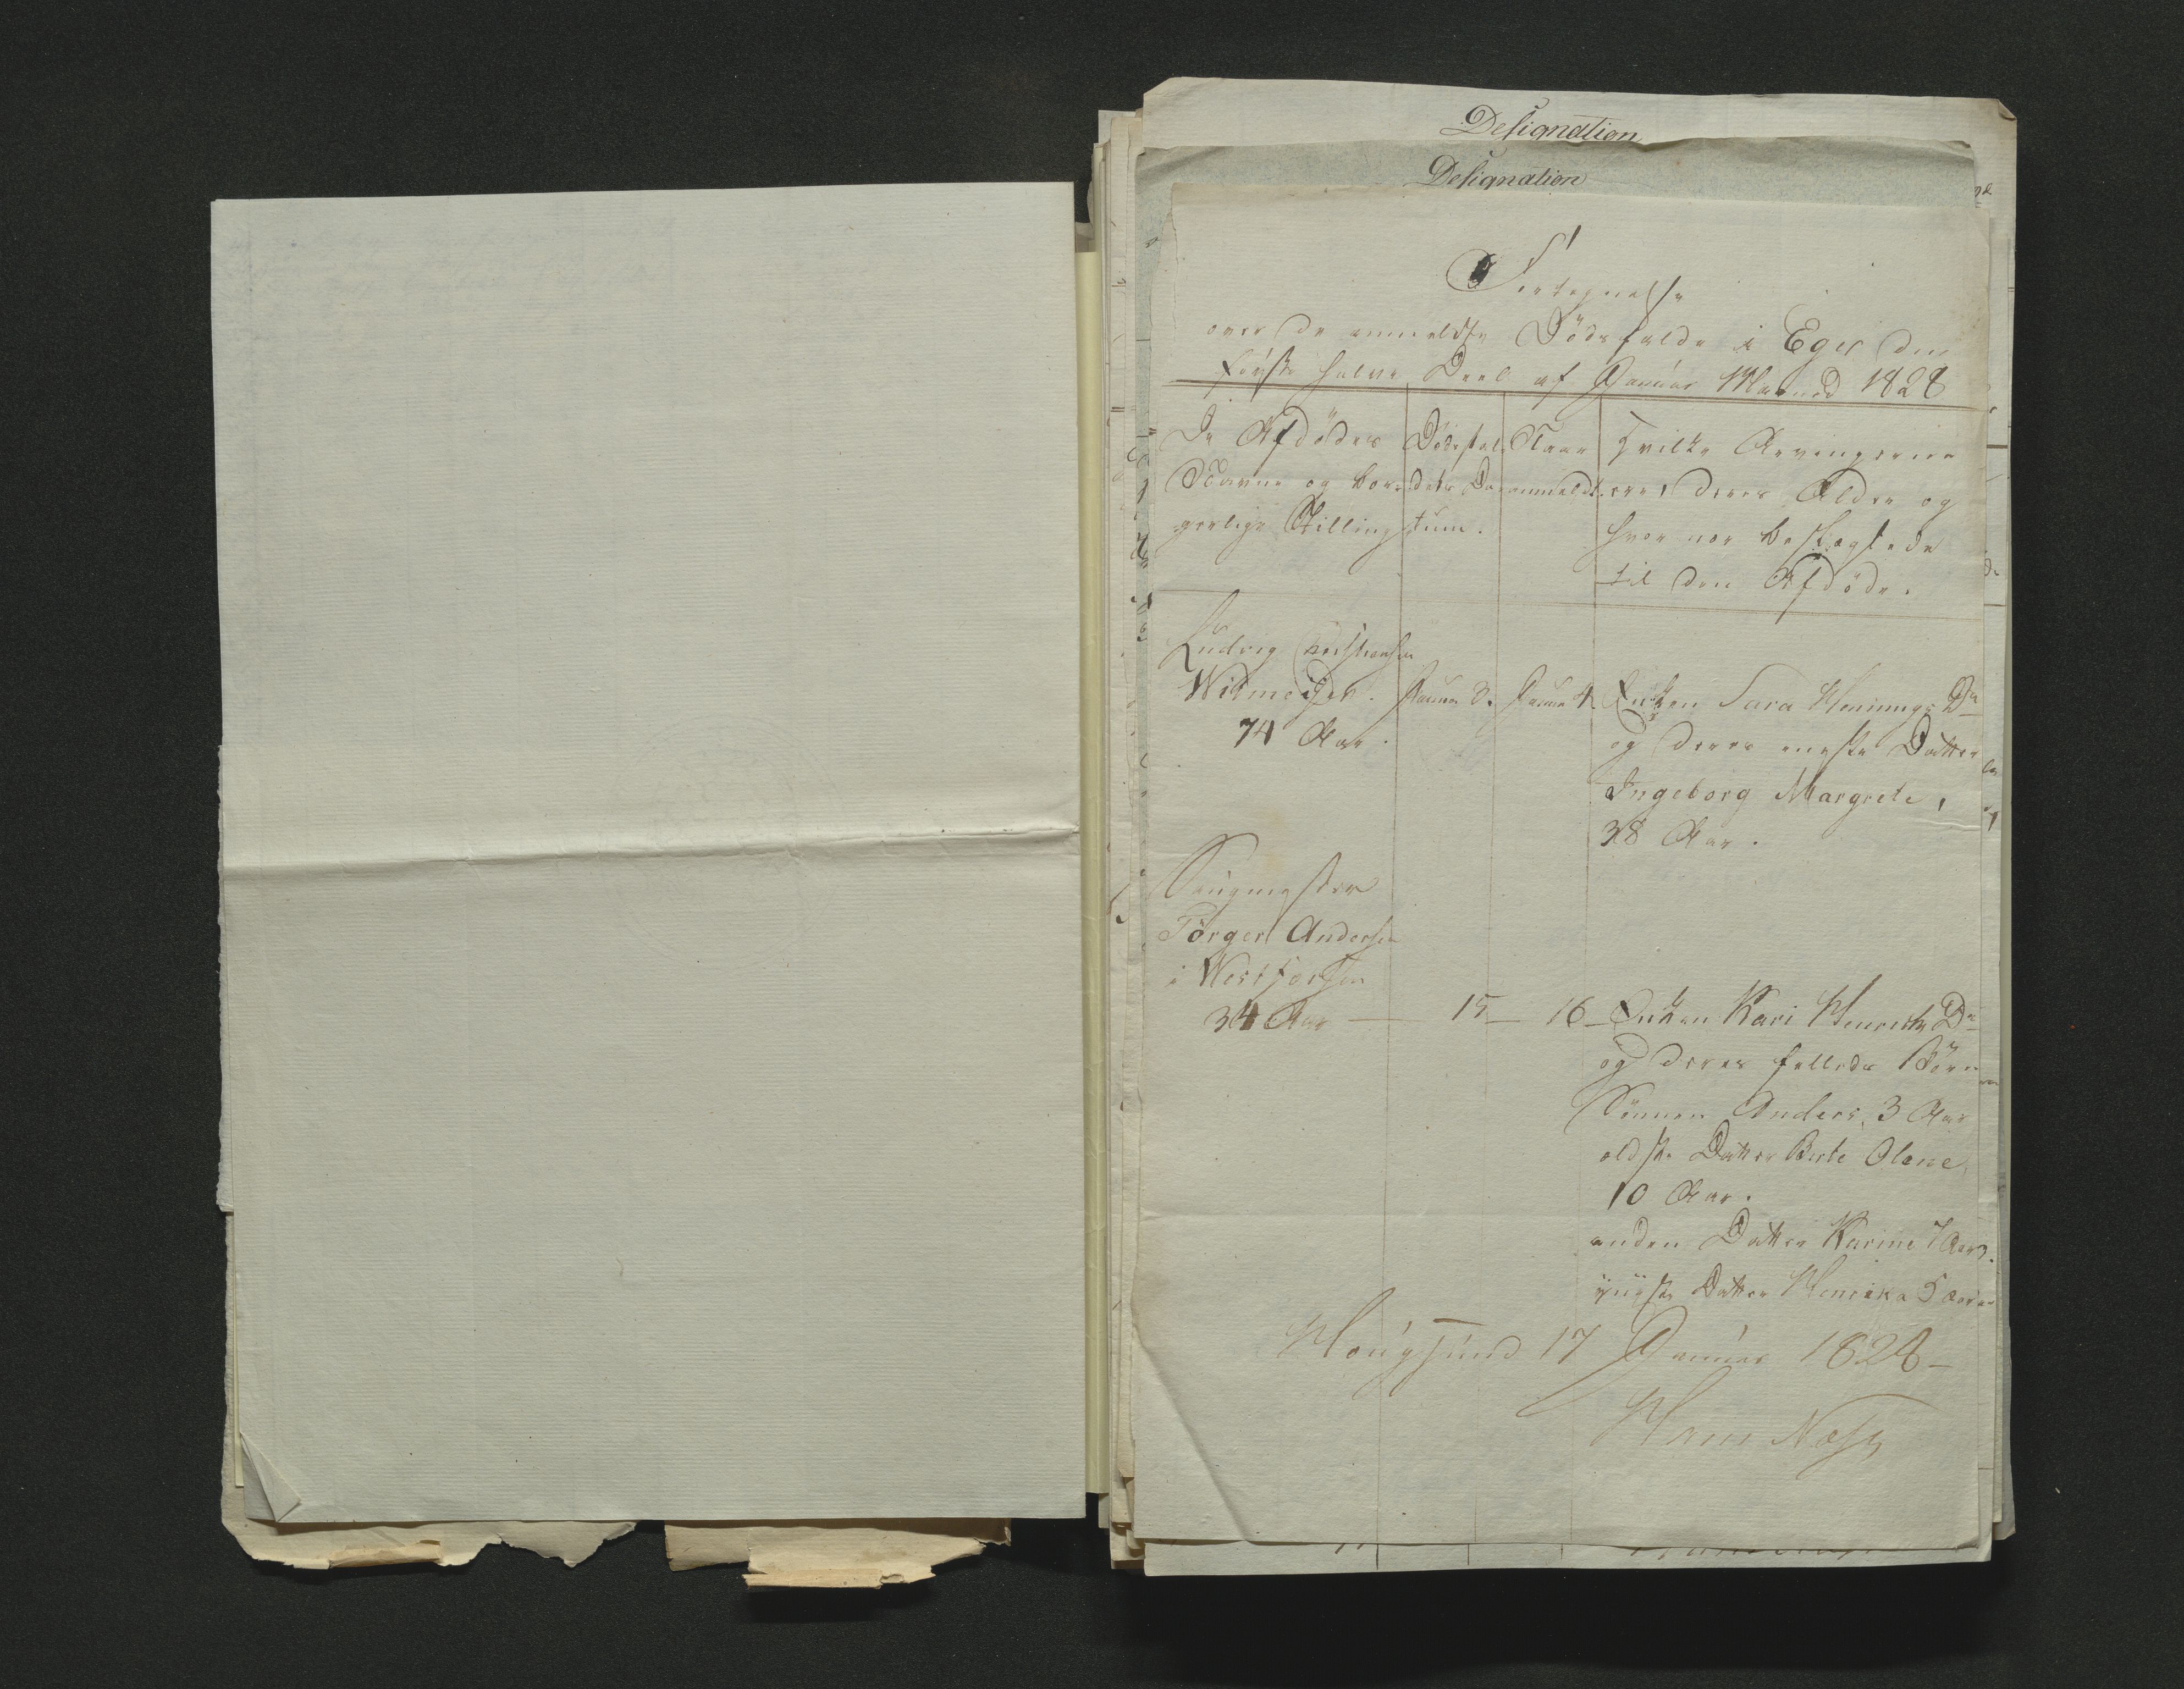 Designation
Designation
Fortegnelse
over de anmeldte Dödsfalde i Eger den
første halve Deel af Januar Maaned 1828
De Afdödes
Navne og bor-
gerlige Stilling
Dödsfal-
dets Da-
tum.
Naar
anmeldt.
Hvilke Arvingerne
ere, deres Alder og
hvor nær beslægtede
til den Afdöde.
Ludvig Christiansen
Witmeyer.
74 Aar.
Januar 3.
Januar 4
Enken Sara Hennings Dr
og deres eneste Datter
Ingeborg Margrete,
38 Aar.
Saugmester
Törger Andersen
i Westfossen
34 Aar
15
16
Enken Kari Henriks Dr
og deres felleds Börn
Sönnen Anders, 3 Aar
eldste Datter Berte Olene
10 Aar.
anden Datter Karine 7 Aar.
yngste Datter Henrika 5 Aar
Hougsund 17 Januar 1828
Hans Næss